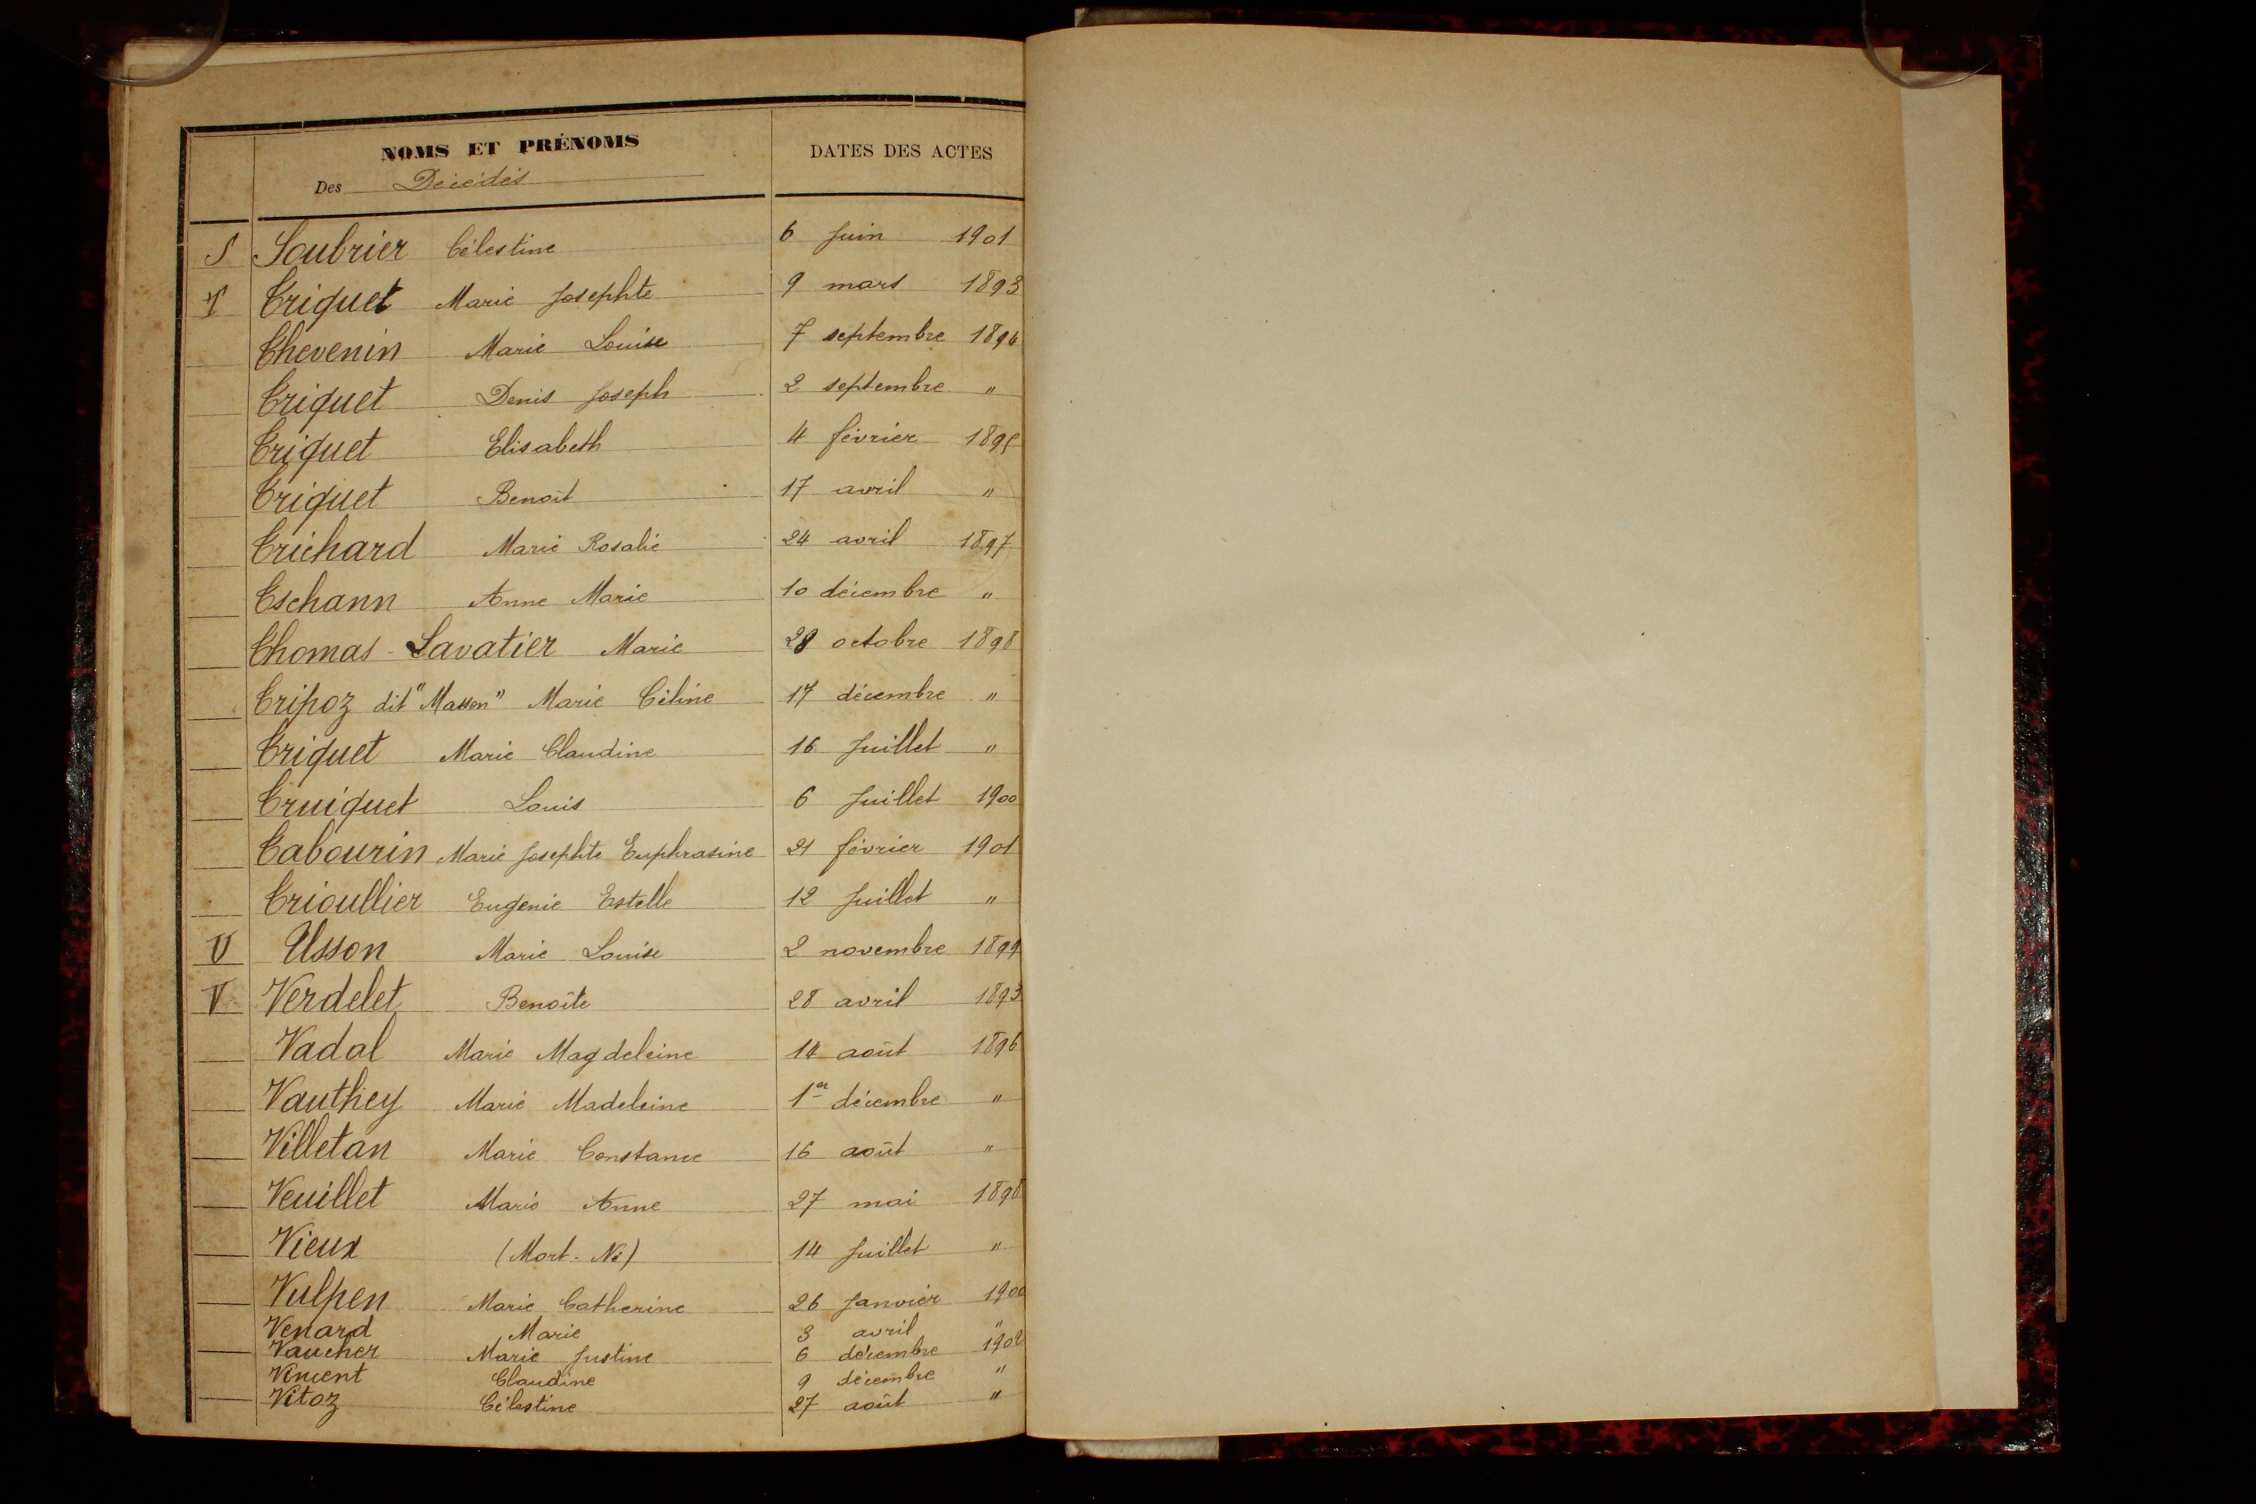 NOMS ET PRÉNOMS
Des Décédés
DATES DES ACTES
S Soubrier Célestine 6 Juin 1901
T Triquet Marie Josephte 9 mars 1893
Thevenin Marie Louise 7 septembre 1894
Triquet Denis Joseph 2 septembre "
Triquet Elisabeth 4 février 1895
Triquet Benoît 17 avril "
Trichard Marie Rosalie 24 avril 1897
Tschann Anne Marie 10 décembre "
Thomas-Lavatier Marie 28 octobre 1898
Tripoz dit "Masson" Marie Céline 17 décembre "
Triquet Marie Claudine 16 Juillet "
Truiquet Louis 6 Juillet 1900
Tabourin Marie Josephte Euphrasine 21 février 1901
Trioullier Eugenie Estelle 12 Juillet "
U Usson Marie Louise 2 novembre 1899
V Verdelet Benoîte 28 avril 1893
Vadal Marie Magdeleine 14 août 1896
Vauthey Marie Madeleine 1er décembre "
Villetan Marie Constance 16 août "
Veuillet Marie Anne 27 mai 1898
Vieux (Mort-Né) 14 Juillet "
Vulpen Marie Catherine 26 Janvier 1900
Venard Marie 3 avril "
Vaucher Marie Justine 6 décembre 1902
Vincent Claudine 9 décembre "
Vitoz Célestine 27 août "